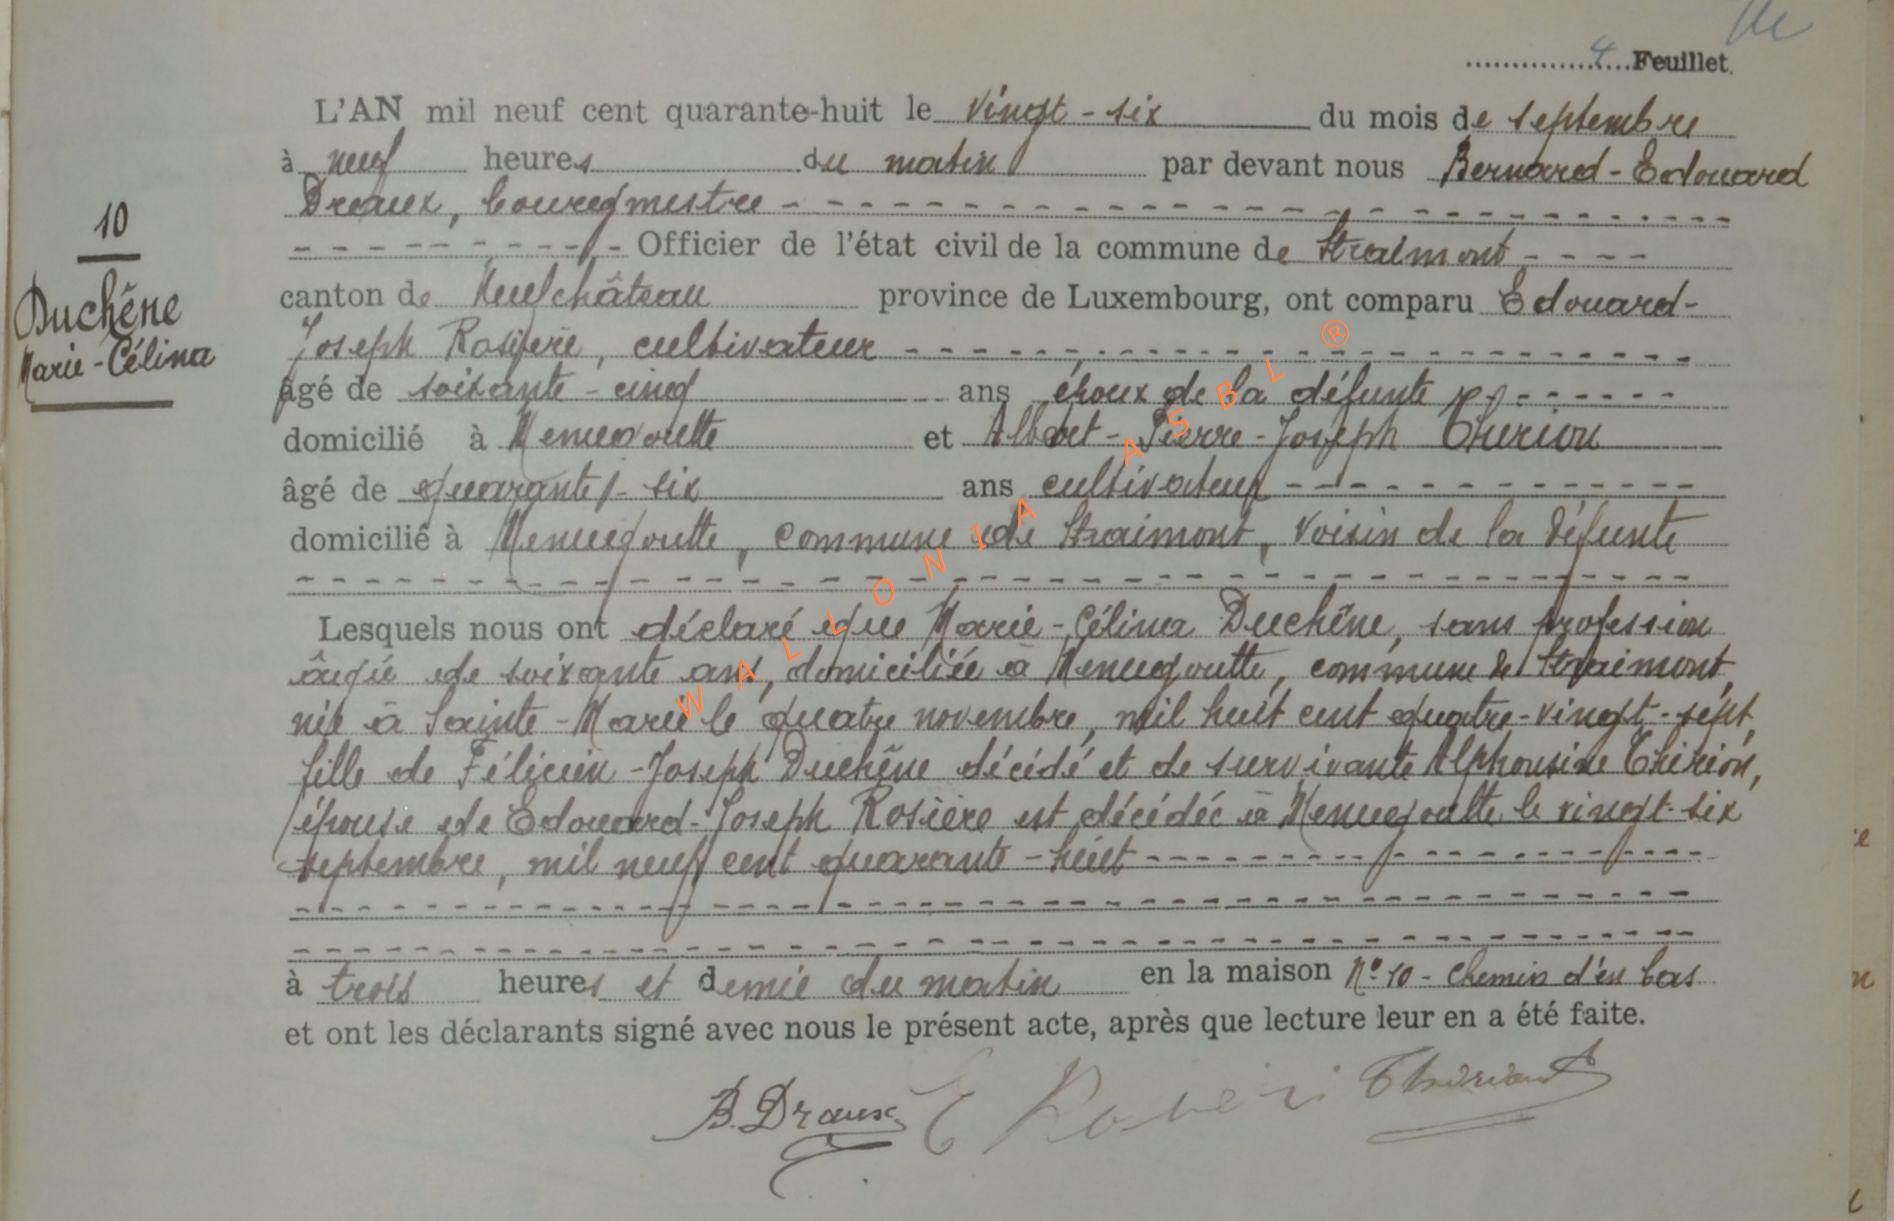 4 Feuillet.
L'AN mil neuf cent quarante-huit le vingt-six du mois de septembre
à neuf heures du matin par devant nous Bernard-Edouard
Draux, bourgmestre
10
Officier de l'état civil de la commune de Straimont
Duchêne
canton de Neufchâteau province de Luxembourg, ont comparu Edouard-
Marie-Célina
Joseph Rosière, cultivateur
âgé de soixante-cinq ans époux de la défunte
domicilié à Menugoutte et Albert-Pierre-Joseph Thiriou
âgé de quarante-six ans cultivateur
domicilié à Menugoutte, commune de Straimont, voisin de la défunte
Lesquels nous ont déclaré que Marie-Célina Duchêne, sans profession
âgée de soixante ans, domiciliée à Menugoutte, commune de Straimont,
née à Sainte-Marie le quatre novembre, mil huit cent quatre-vingt-sept,
fille de Félicien-Joseph Duchêne décédé et de survivante Alphonsine Thirion,
épouse de Edouard-Joseph Rosière est décédée à Menugoutte le vingt-six
septembre, mil neuf cent quarante-huit
à trois heures et demie du matin en la maison N° 10 - chemin d'en bas
et ont les déclarants signé avec nous le présent acte, après que lecture leur en a été faite.
B. Draux E Thiriont
WALLONIA ASBL ®